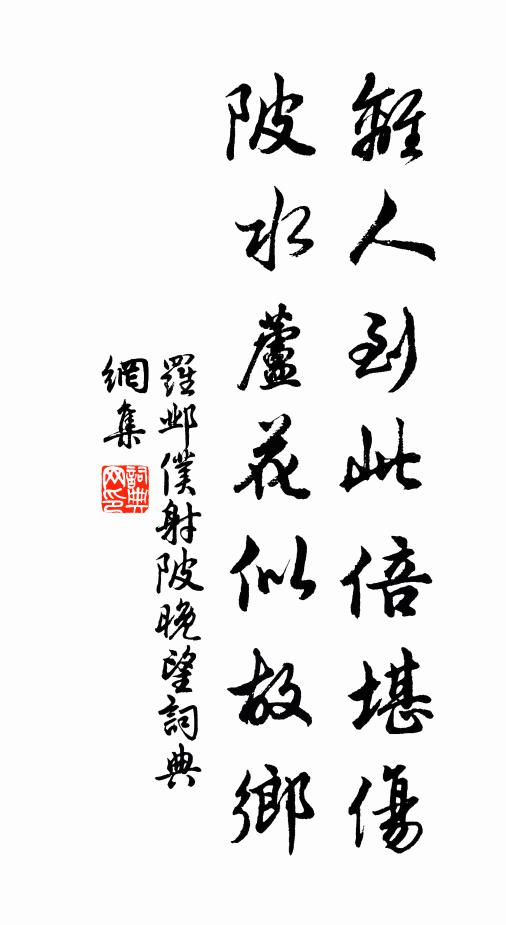 離人到此倍堪傷
陂水蘆花似故鄉
羅鄴僕射陂晚望詞典
網集
詞典
网印